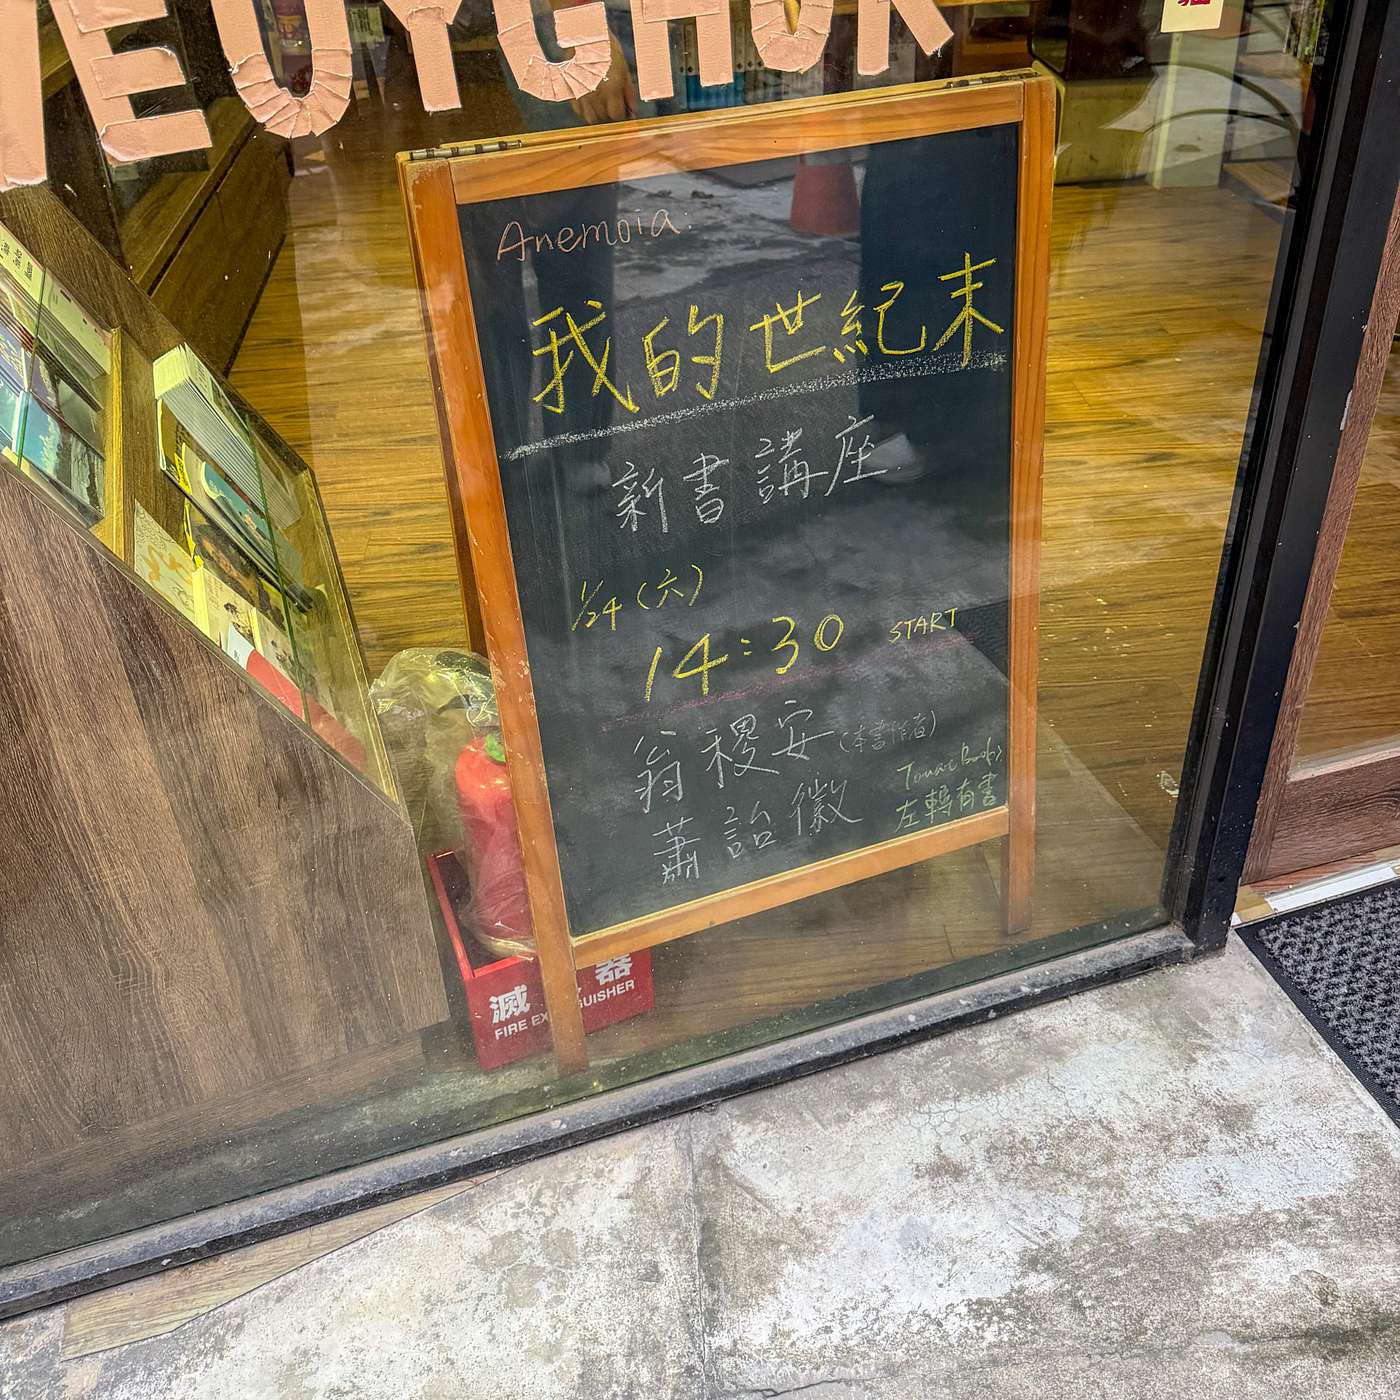 UYGHUR
Anemoia:
我的世紀末
新書講座
1/24(六)
14:30 START
翁稷安(本書作者)
蕭詒徽
Touat Books
左轉有書
滅 器
FIRE EX UISHER